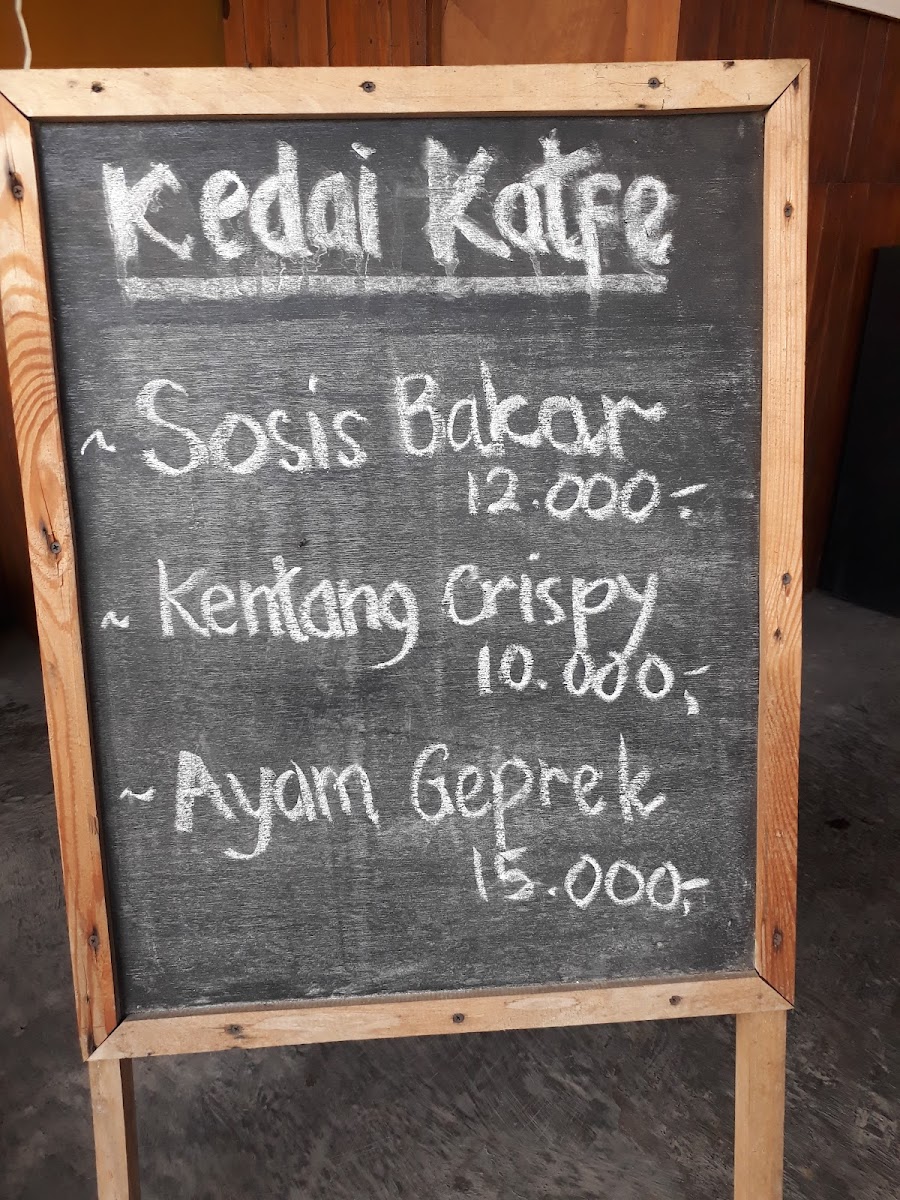 Kedai Katfe
~ Sosis Bakar
12.000,-
~ Kentang Crispy
10.000,-
~ Ayam Geprek
15.000,-